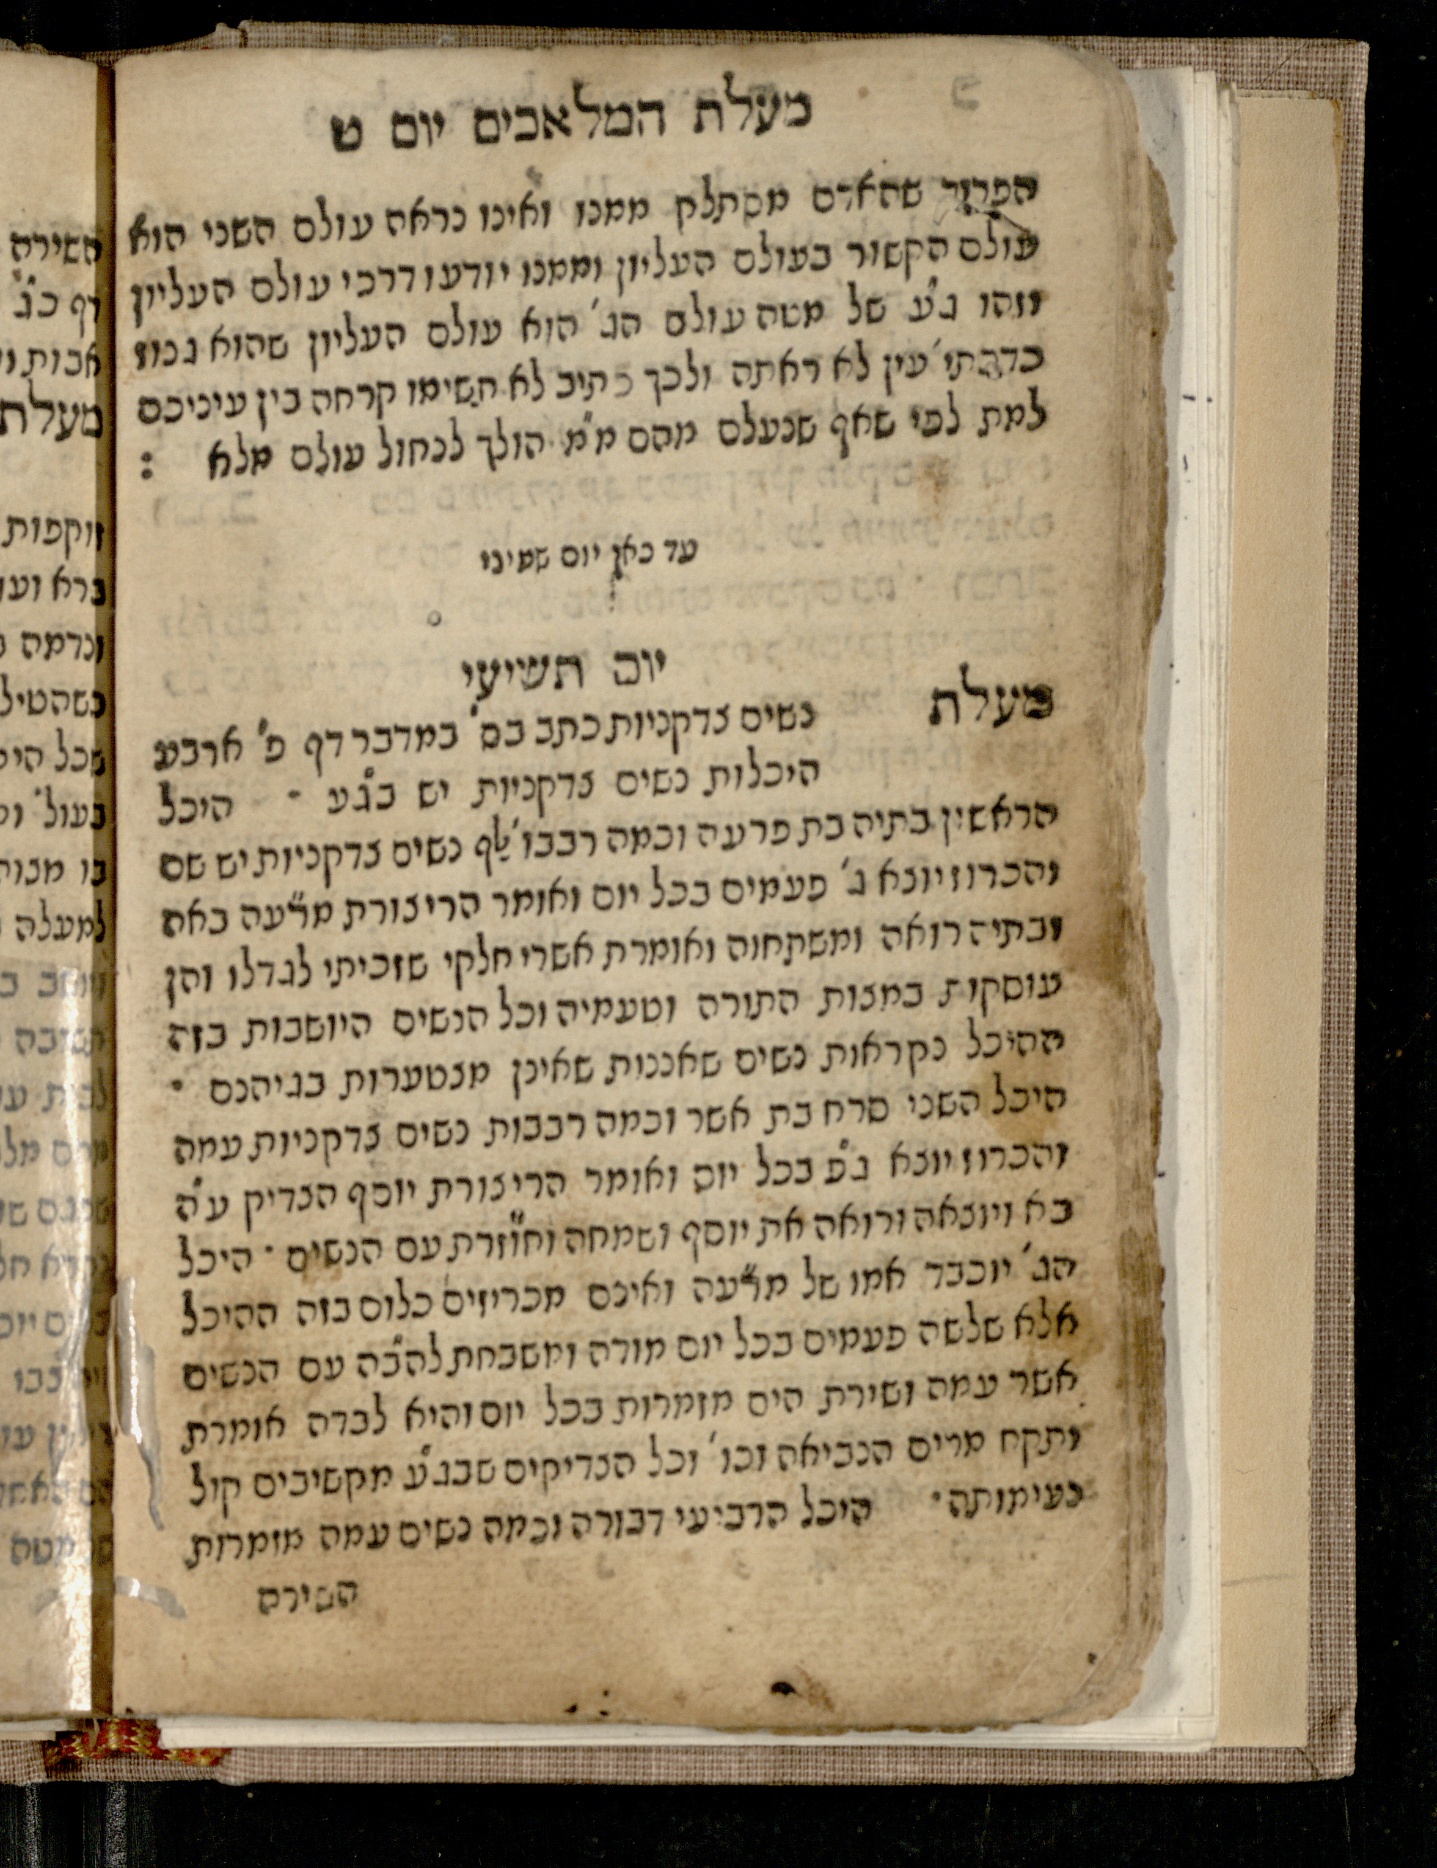 מעלת המלאכים יום ט
הפרוד שהאדם מסתלק ממנו ואינו נראה עולם השני הוא
עולם הקשור בעולם העליון וממנו יודעו דרכי עולם העליון
וזהו ג"ע של מטה עולם הג' הוא עולם העליון שהוא גנוז
כדכתי' עין לא ראתה ולכך כתיב לא תשימו קרחה בין עיניכם
למת לפי שאף שנעלם מהם מ"מ הולך לנחול עולם מלא :
עד כאן יום שמיני
יום תשיעי
מעלת נשים צדקניות כתב בס' במדבר דף פ' ארבע
היכלות נשים צדקניות יש בג"ע · היכל
הראשון בתיה בת פרעה וכמה רבבו' אלף נשים צדקניות יש שם
והכרוז יוצא ג' פעמים בכל יום ואומר הרי צורת מרע"ה באה
ובתיה רואה ומשתחוה ואומרת אשרי חלקי שזכיתי לגדלו והן
עוסקות במצות התורה וטעמיה וכל הנשים היושבות בזה
ההיכל נקראות נשים שאננות שאינן מצטערות בגיהנם ·
היכל השני סרח בת אשר וכמה רבבות נשים צדקניות עמה
והכרוז יוצא ג"פ בכל יום ואומר הרי צורת יוסף הצדיק ע"ה
בא ויוצאה ורואה את יוסף ושמחה וחוזרת עם הנשים · היכל
הג' יוכבד אמו של מרע"ה ואינם מכריזים כלום בזה ההיכל
אלא שלשה פעמים בכל יום מודה ומשבחת להב"ה עם הנשים
אשר עמה ושירת הים מזמרות בכל יום והיא לבדה אומרת
ותקח מרים הנביאה וכו' וכל הצדיקים שבג"ע מקשיבים קול
נעימותה · היכל הרביעי דבורה וכמה נשים עמה מזמרות
השירה